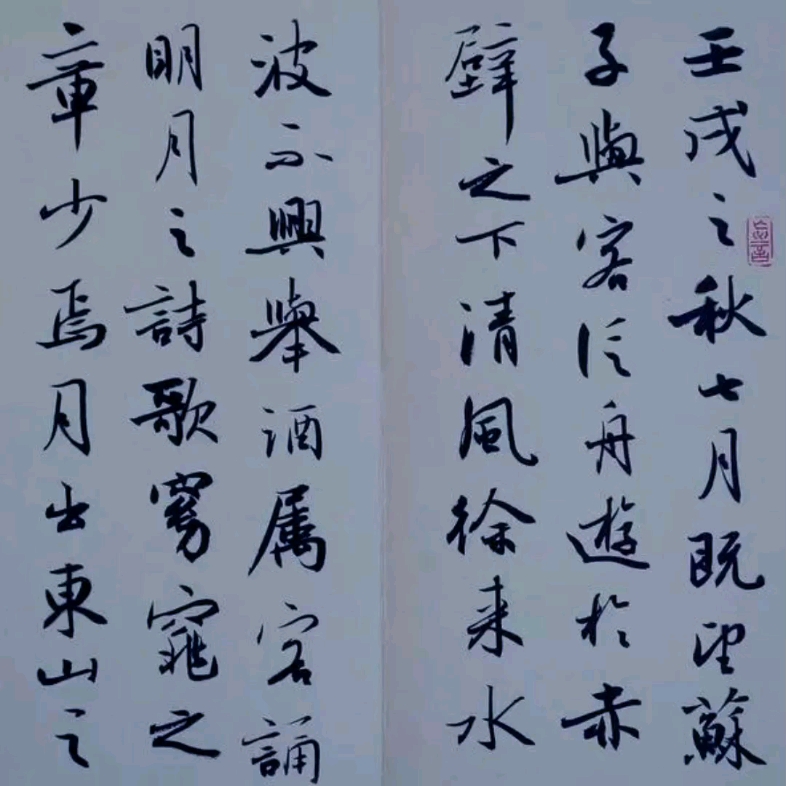 壬戌之秋七月既望蘇
子與客泛舟遊於赤
壁之下清風徐来水
波不興舉酒属客誦
明月之詩歌窈窕之
章少焉月出東山之